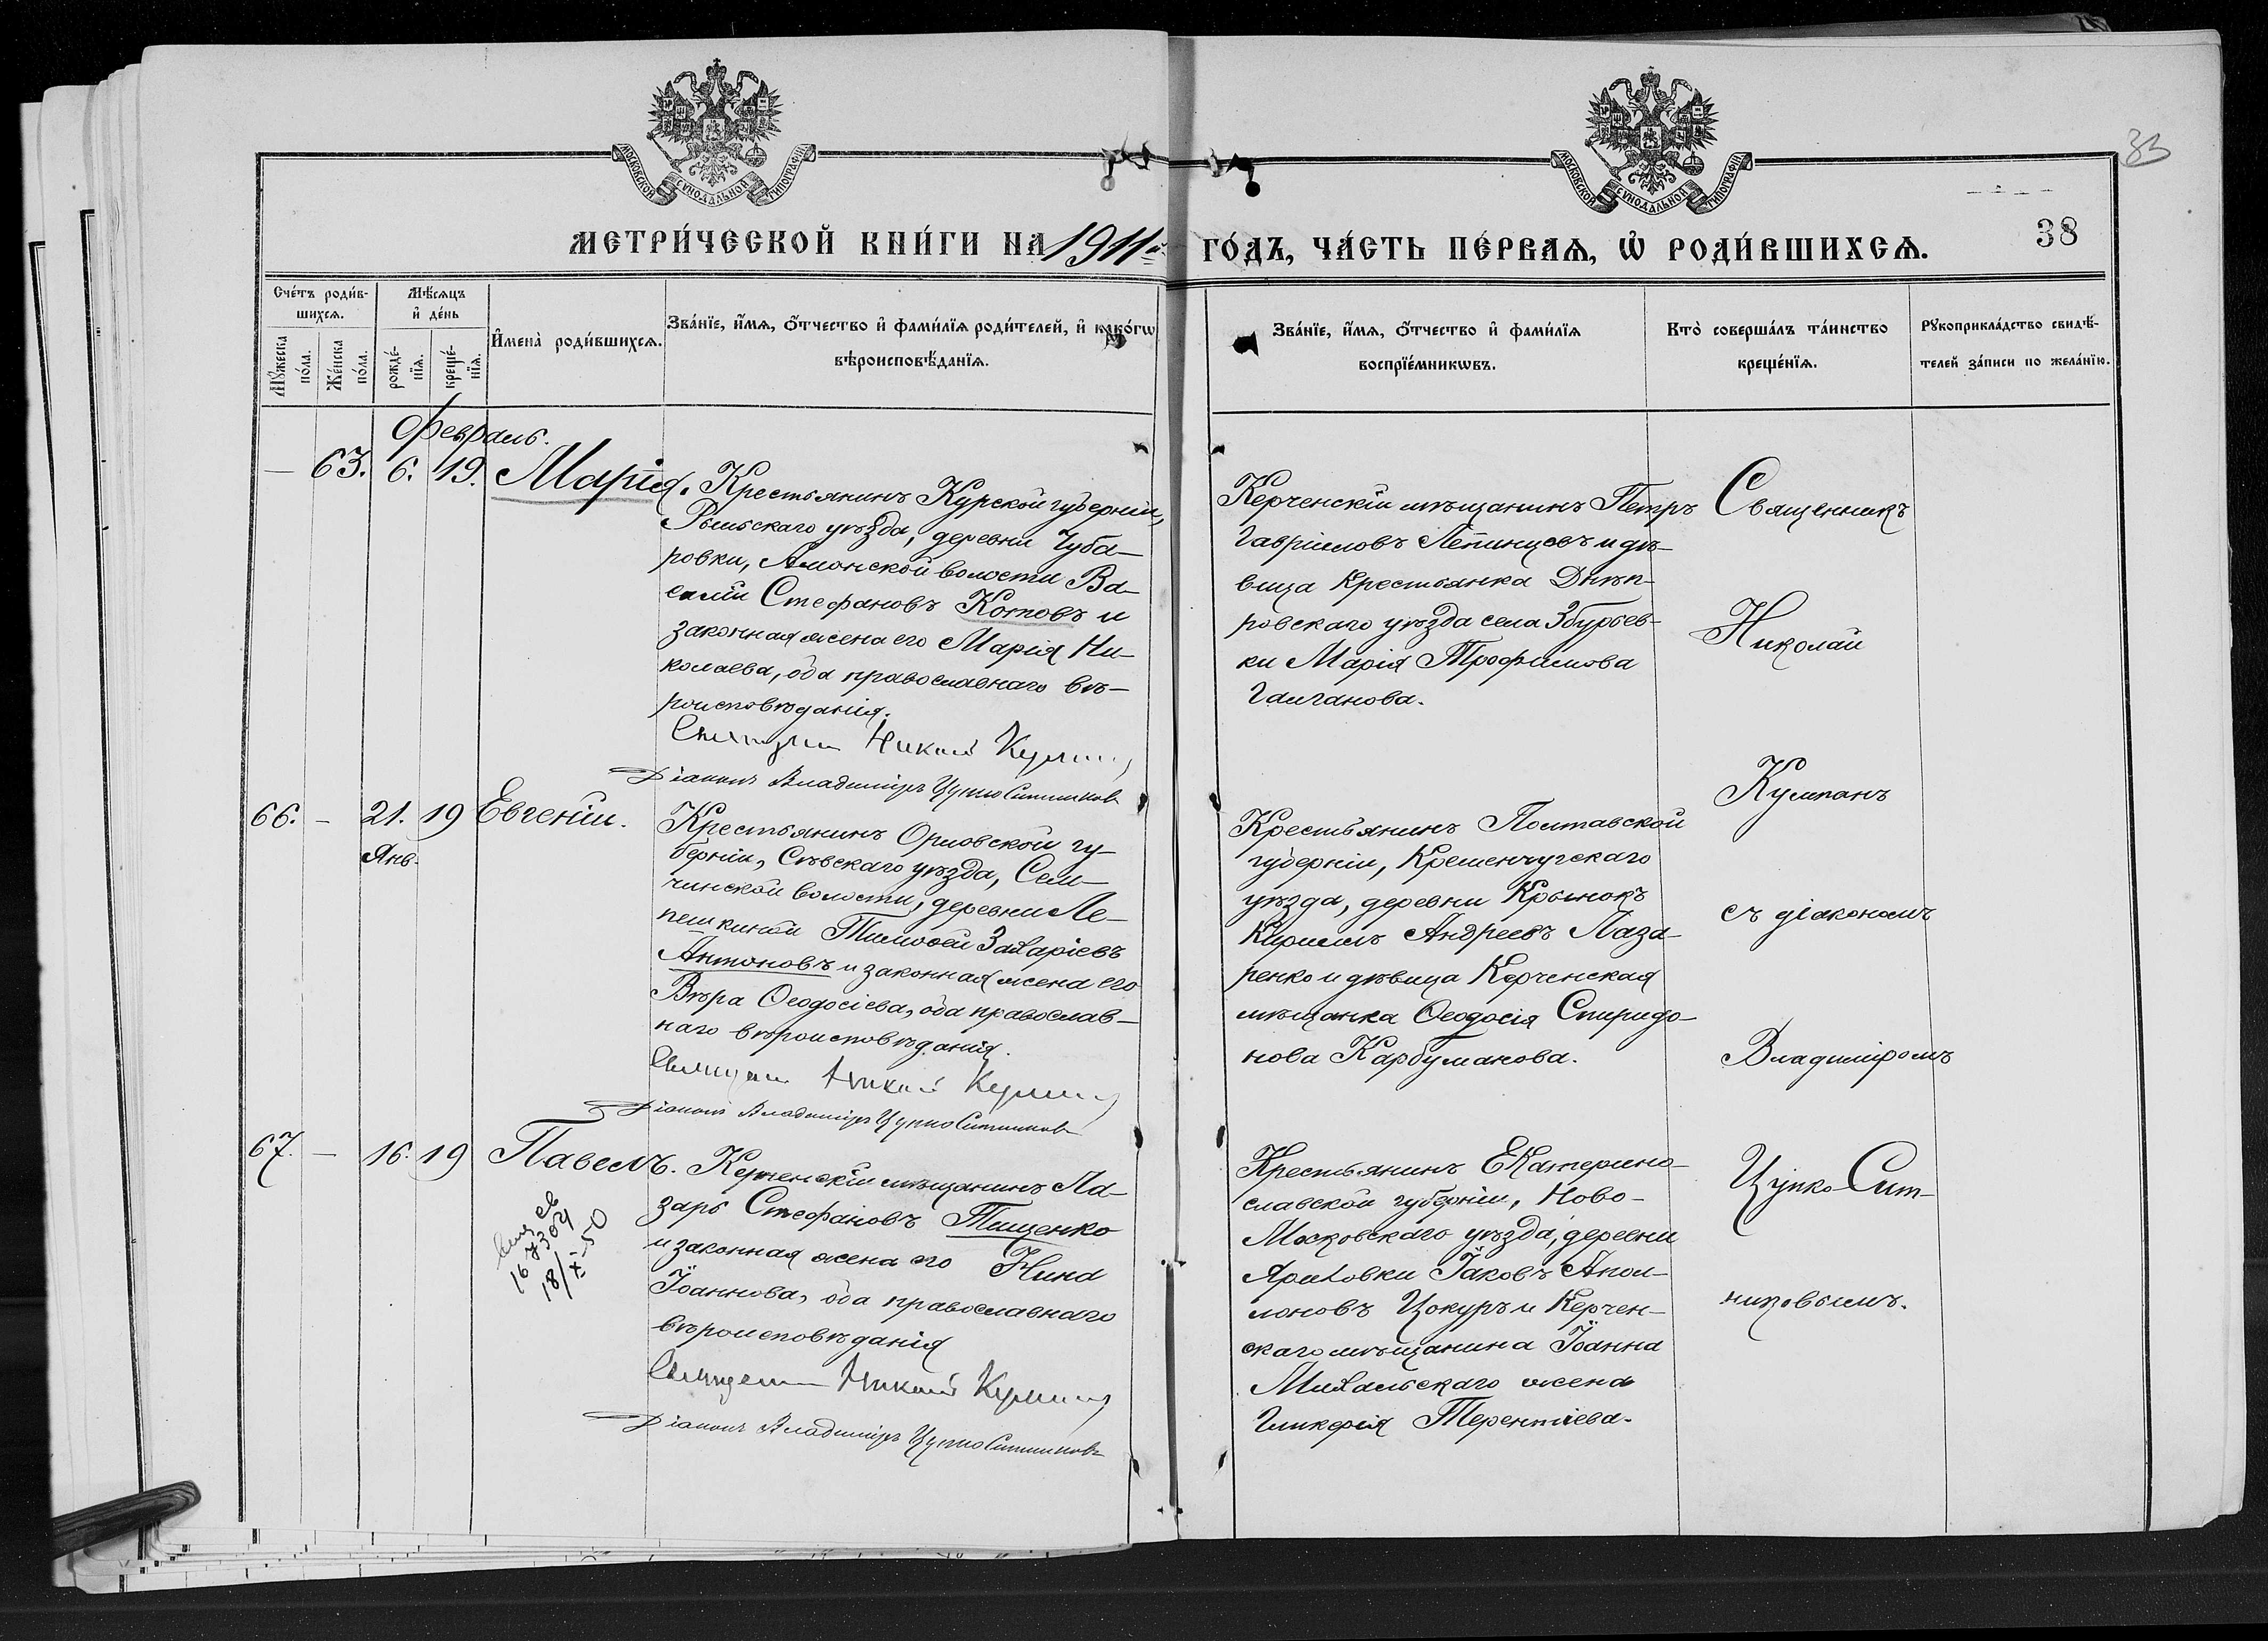 МОСКОВСКОЙ СѴНОДАЛЬНОЙ ТИПОГРАФІИ
МОСКОВСКОЙ СѴНОДАЛЬНОЙ ТИПОГРАФІИ
33
МЕТРИ́ЧЕСКОЙ КНИ́ГИ НА 1911й ГО́ДЪ, ЧА́СТЬ ПЕ́РВАѦ, Ѡ РОДИ́ВШИХСѦ.
38
Сче́тъ роди́в-
шихсѧ.
Мѣ́сѧцъ
и҆ де́нь
Мꙋ́жеска
по́ла.
Же́нска
по́ла.
рожде́-
нїѧ.
креще́-
нїѧ.
И҆мена̀ роди́вшихсѧ.
Зва́нїе, и҆́мѧ, ѻ҆́тчество и҆ фами́лїѧ роди́телей, и҆ како́гѡ
вѣроисповѣ́данїѧ.
Зва́нїе, и҆́мѧ, ѻ҆́тчество и҆ фами́лїѧ
воспрїе́мникѡвъ.
Кто̀ соверша́лъ та́инство
креще́нїѧ.
Рꙋкоприкла́дство свидѣ́-
телей за́писи по жела́нїю.
Февраль.
— 63. 6. 19. Марія.
Крестьянинъ Курской губерніи,
Рыльскаго уѣзда, деревни Чуба-
ровки, Амонской волости Ва-
силій Стефановъ Котовъ и
законная жена его Марія Ни-
колаева, оба православнаго вѣ-
роисповѣданія.
Священникъ Николай Кумпанъ
Діаконъ Владиміръ Цупко Ситниковъ
Керченскій мѣщанинъ Петръ
Гавріиловъ Лепинцовъ и дѣ-
вица крестьянка Днѣп-
ровскаго уѣзда села Збурьев-
ки Марія Трофимова
Галганова.
66. — 21. 19 Евгеній.
Янв.
Крестьянинъ Орловской гу-
берніи, Сѣвскаго уѣзда, Сем-
чинской волости, деревни Ле-
пешкиной Тимоѳей Захаріевъ
Антоновъ и законная жена его
Вѣра Ѳеодосіева, оба православ-
наго вѣроисповѣданія.
Священникъ Николай Кумпанъ
Діаконъ Владиміръ Цупко Ситниковъ
Крестьянинъ Полтавской
губерніи, Кременчугскаго
уѣзда, деревни Крынокъ
Кириллъ Андреевъ Лаза-
ренко и дѣвица Керченская
мѣщанка Ѳеодосія Спиридо-
нова Карбуманова.
67. — 16. 19 Павелъ.
св
16 7304
18/X-50
Керченскій мѣщанинъ Ла-
зарь Стефановъ Тищенко
и законная жена его Нина
Іоаннова, оба православнаго
вѣроисповѣданія
Священникъ Николай Кумпанъ
Діаконъ Владиміръ Цупко Ситниковъ
Крестьянинъ Екатерино-
славской губерніи, Ново-
Московскаго уѣзда, деревни
Іаковъ Апол-
лоновъ Цокуръ и Керчен-
скаго мѣщанина Іоанна
Михальскаго жена
Гликерія Терентіева.
Священникъ
Николай
Кумпанъ
съ діакономъ
Владиміромъ
Цупко-Сит-
никовымъ.